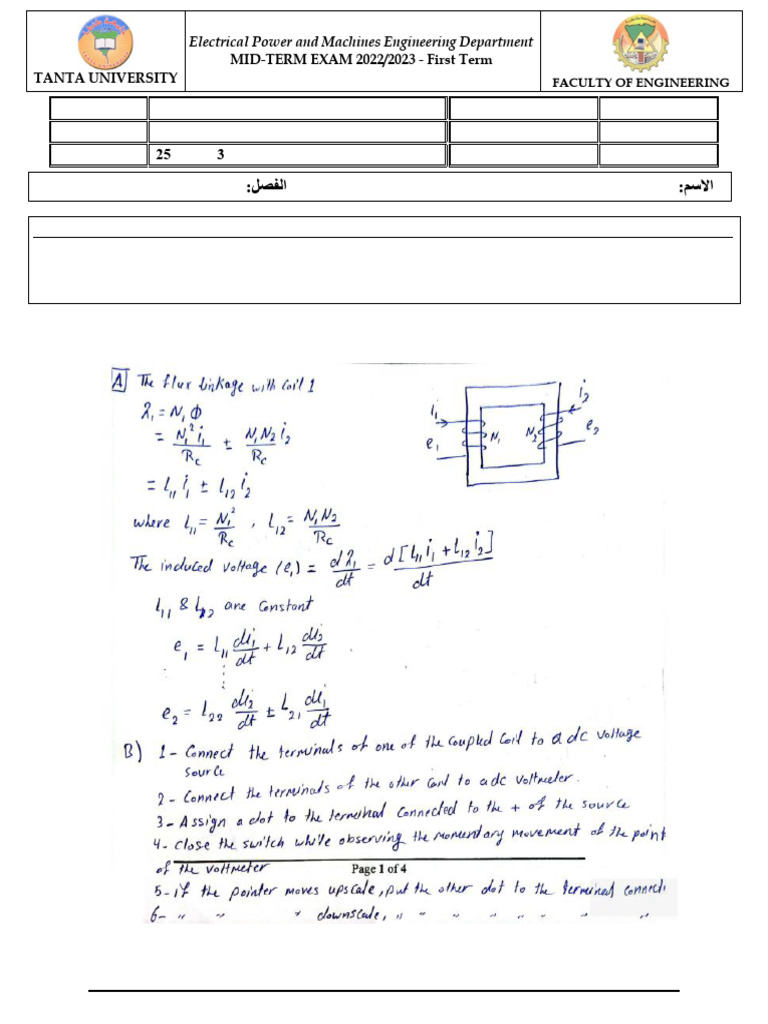 Electrical Power and Machines Engineering Department
MID-TERM EXAM 2022/2023 - First Term
TANTA UNIVERSITY
FACULTY OF ENGINEERING
25 3
الاسم: الفصل:
A The flux linkage with coil 1
λ₁ = N₁ Φ
= N₁² i₁ / Rc ± N₁ N₂ i₂ / Rc
= L₁₁ i₁ ± L₁₂ i₂
where L₁₁ = N₁² / Rc , L₁₂ = N₁ N₂ / Rc
i₁ e₁ N₁ N₂ i₂ e₂
The induced voltage (e₁) = dλ₁/dt = d[L₁₁ i₁ + L₁₂ i₂]/dt
L₁₁ & L₂₂ are constant
e₁ = L₁₁ di₁/dt + L₁₂ di₂/dt
e₂ = L₂₂ di₂/dt ± L₂₁ di₁/dt
B) 1- Connect the terminals of one of the coupled coil to a dc voltage
source
2- Connect the terminals of the other coil to a dc voltmeter.
3- Assign a dot to the terminal connected to the + of the source
4- close the switch while observing the momentary movement of the point
of the voltmeter
Page 1 of 4
5- if the pointer moves upscale, put the other dot to the terminal connect
6- " " " downscale, " " " " " " "